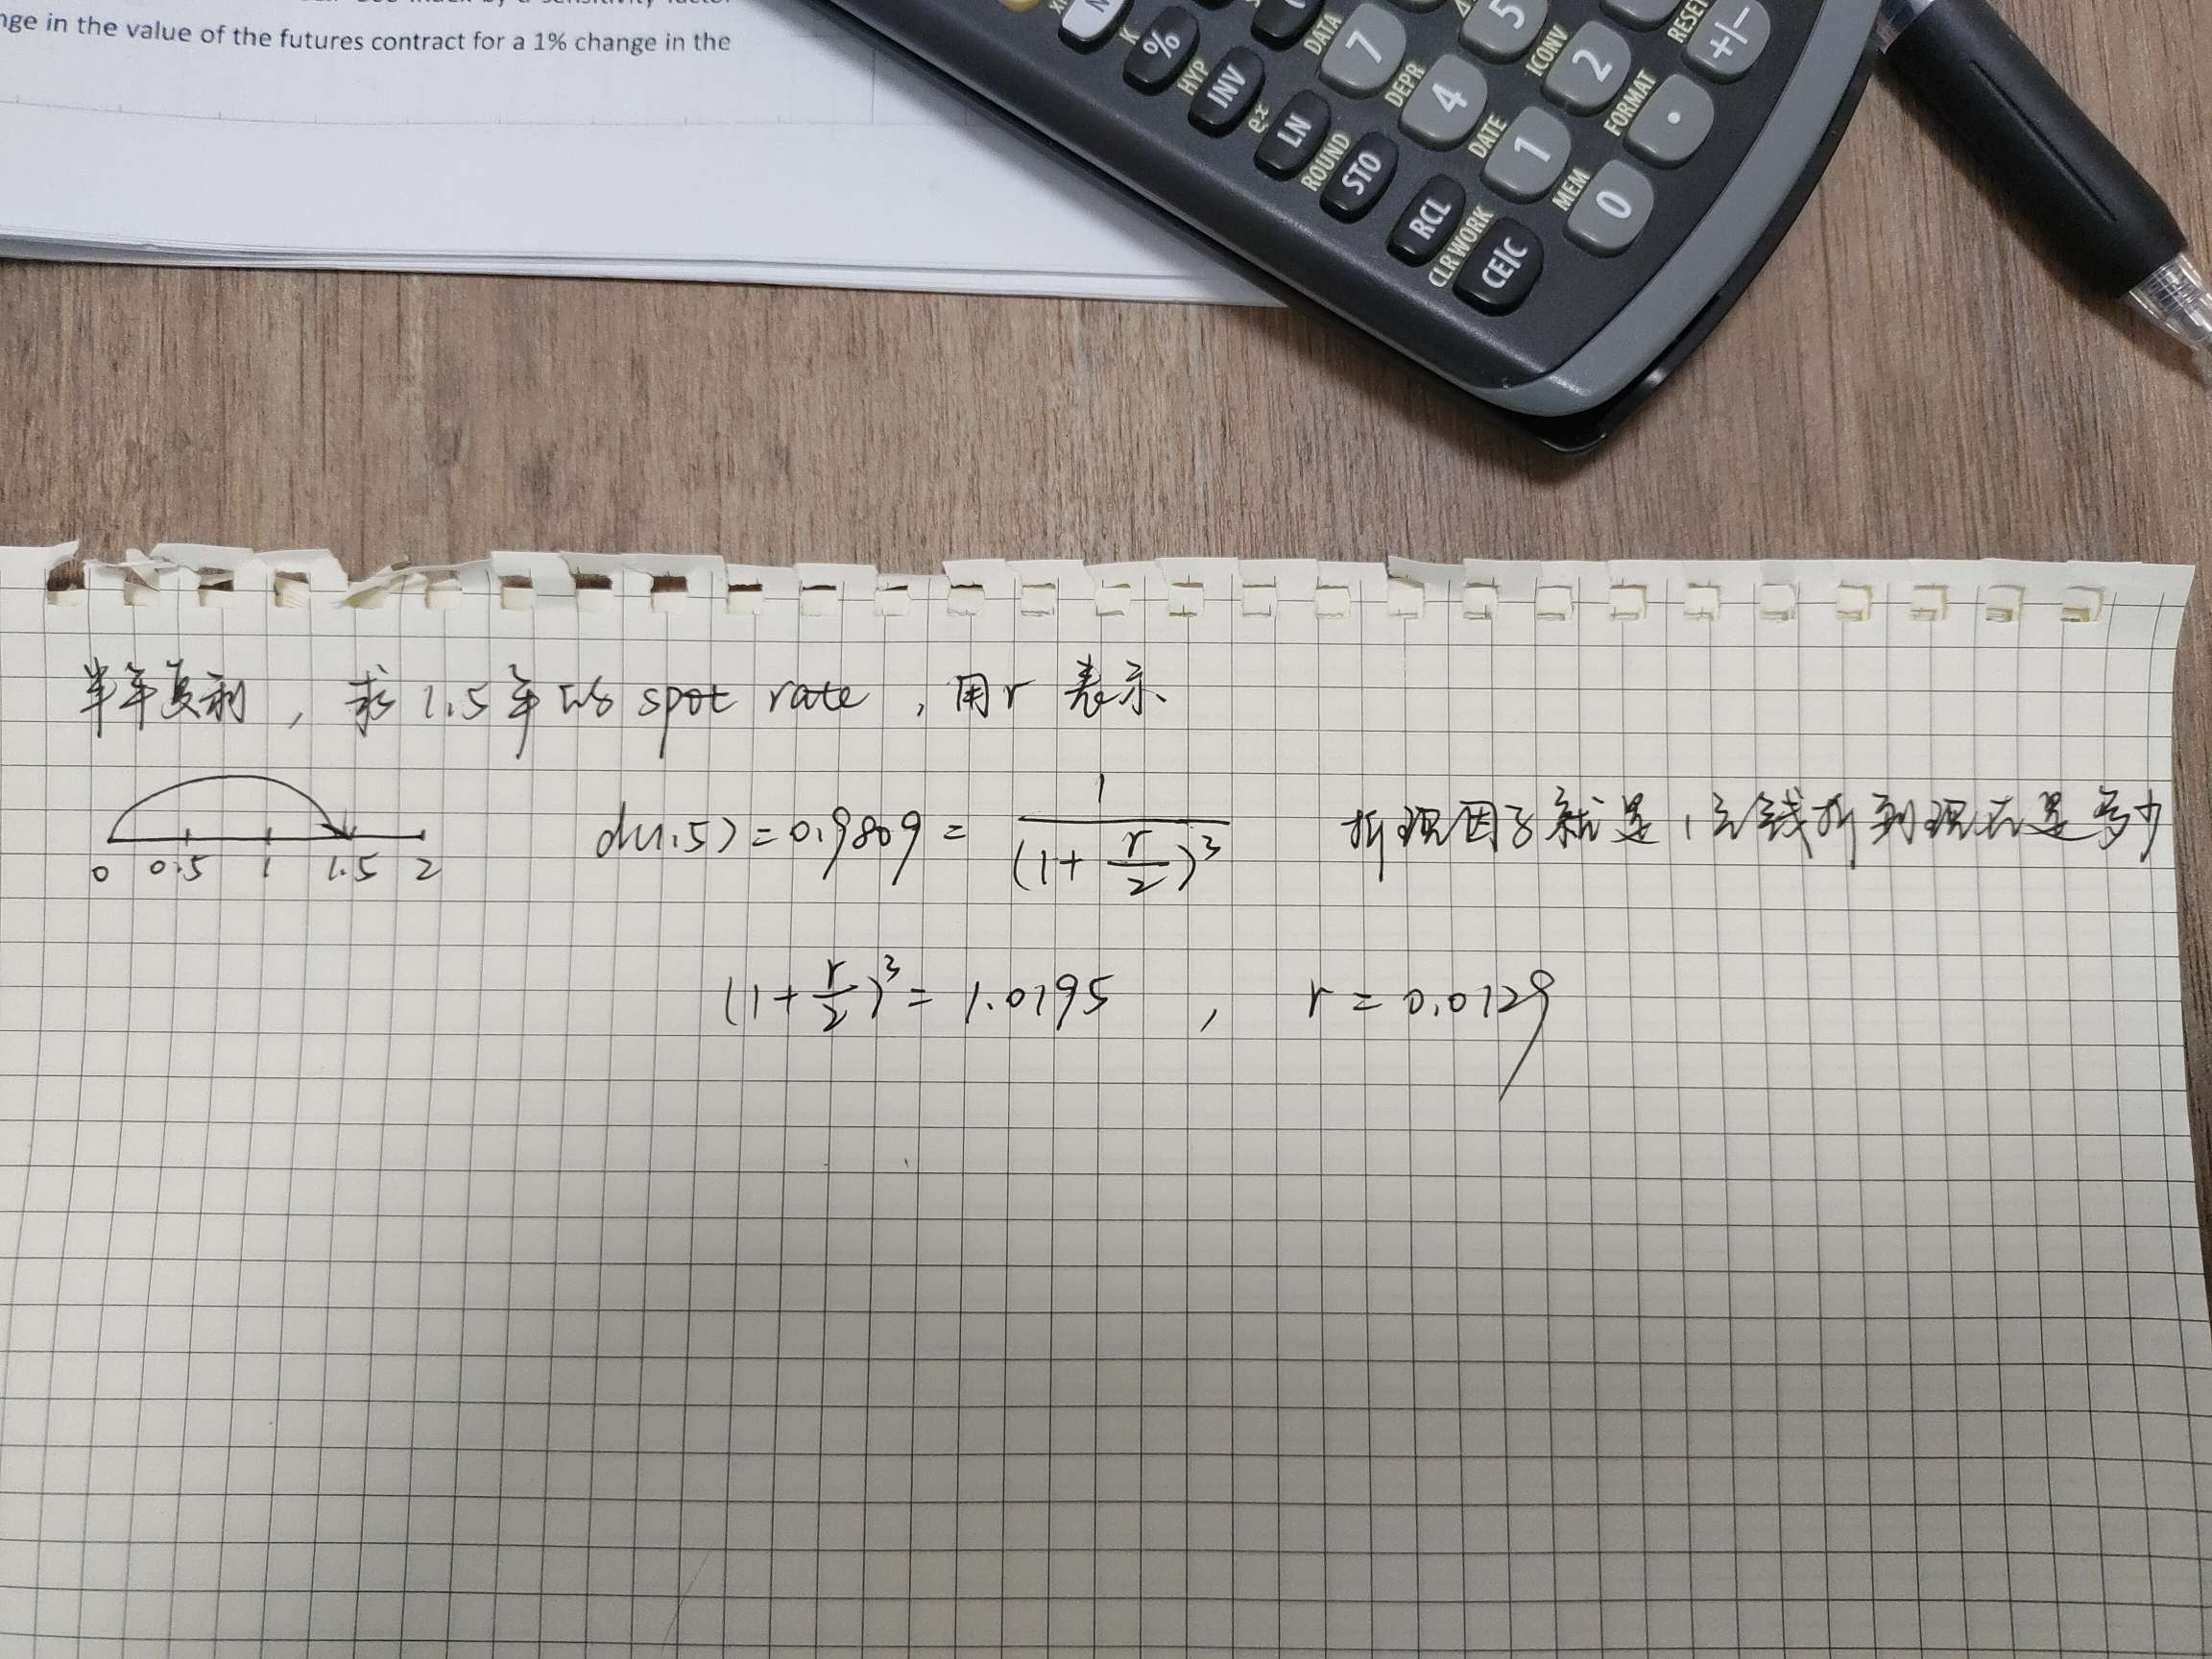 nge in the value of the futures contract for a 1% change in the
% 7 5 2 +|−
K DATA ICONV RESET
HYP DEPR FORMAT
INV 4 1 .
eˣ DATE
LN ROUND STO MEM 0
RCL
CLR WORK
CE|C
半年复利，求1.5年的spot rate，用r表示
0 0.5 1 1.5 2
d(1.5)=0.9809=1/(1+r/2)³ 折现因子就是1元钱折到现在是多少
(1+r/2)³=1.0195，r=0.0129